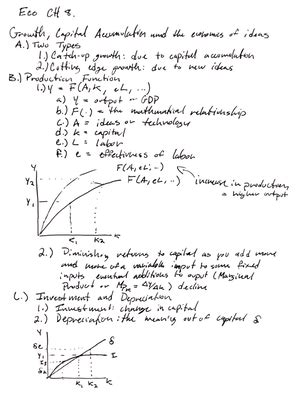 Eco CH 8.
Growth, Capital Accumulation and the economics of ideas
A.) Two Types
1.) Catch-up growth: due to capital accumulation
2.) Cutting edge growth: due to new ideas
B.) Production Function
1.) Y = F(A, K, eL, ...)
a.) Y = output or GDP
b.) F(.) = the mathematical relationship
c.) A = ideas or technology
d.) K = capital
e.) L = labor
f.) e = effectiveness of labor
Y
F(A, eL, ...)
F(A, eL, ...)
Y2
Y1
increase in production,
= higher output
K1 K2 K
2.) Diminishing returns to capital as you add more
and more of a variable input to same fixed
inputs eventual additions to output (Marginal
Product or MPK = ΔY/ΔK) decline
C.) Investment and Depreciation
1.) Investment: change in capital
2.) Depreciation: the out of capital δ
Y
δ
Y1
I
K1 K2 K